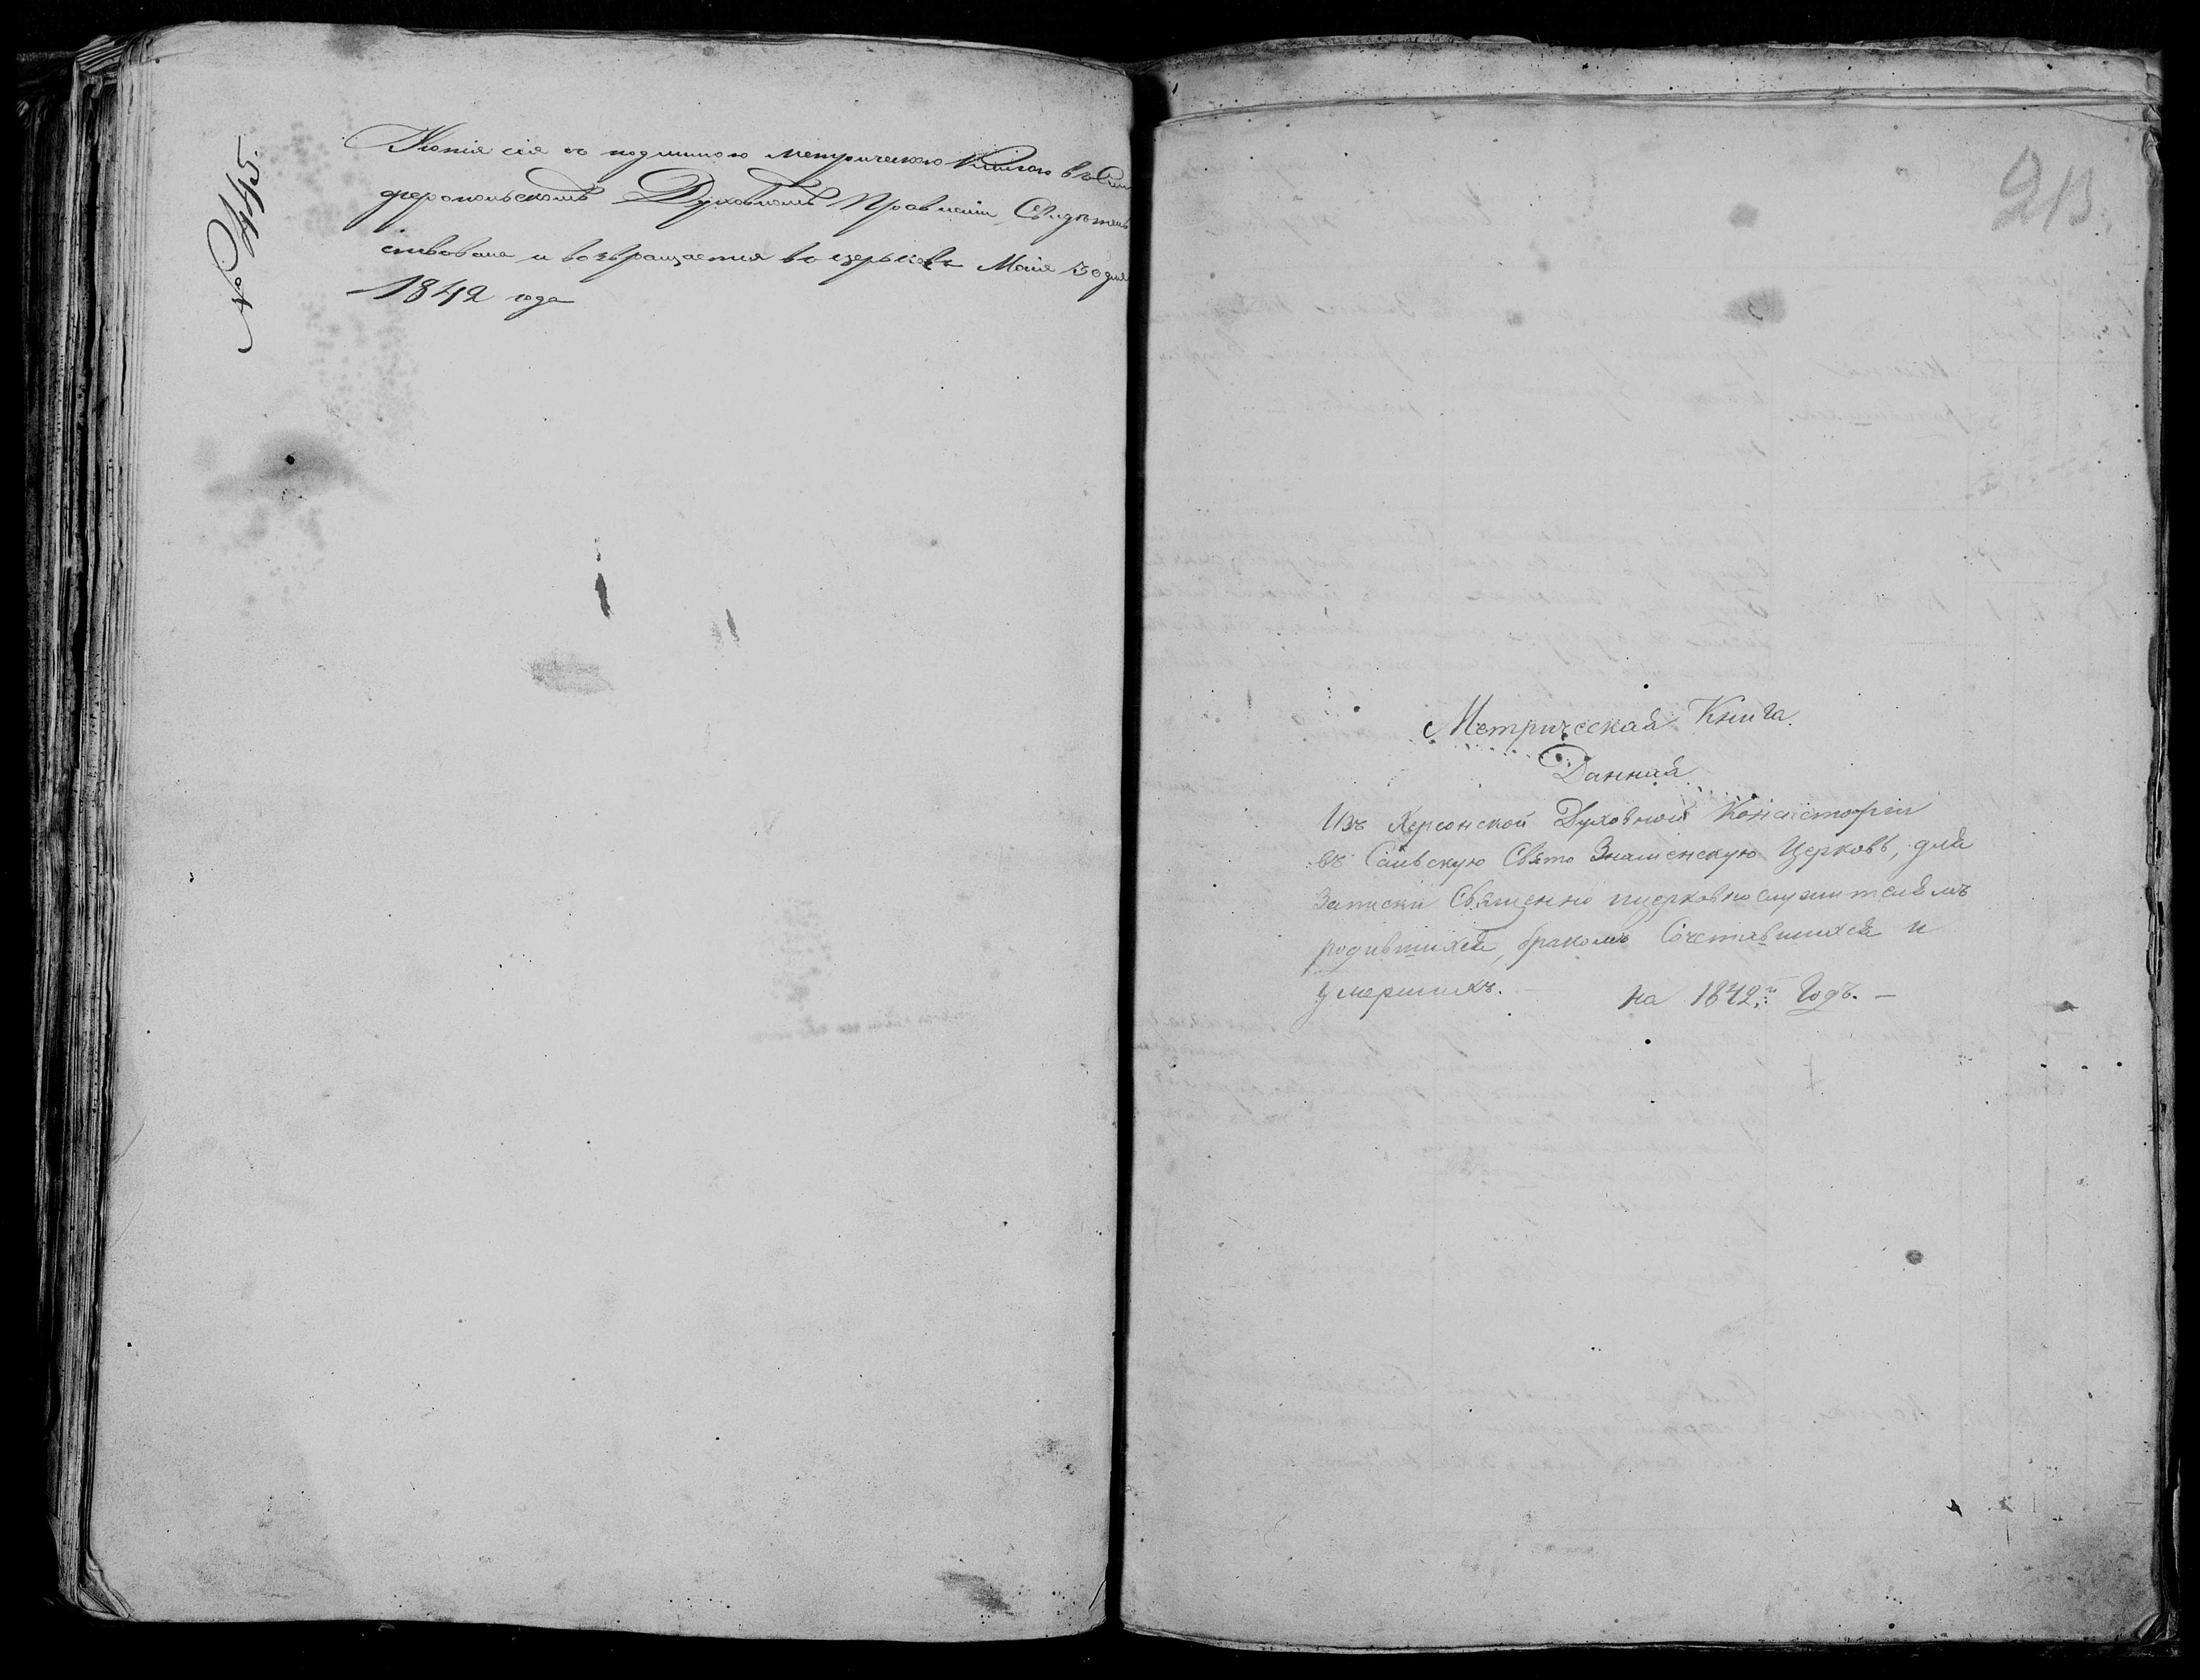 № 445.
Копія сія съ подлинною метрическою Книгою въ Сим
феропольскомъ Духовномъ Правленіи Свидѣтель
ствована и возвращается въ церковь Маія 30 дня
1842 года
213.
Метрическая Книга.
Данная
Изъ Херсонской Духовной Консисторіи
въ Сайвскую Свято Знаменскую Церковь, для
Записки Священно ицерковнослужителямъ
родившихся, бракомъ Сочетавшихся и
умершихъ. на 1842й Годъ. —